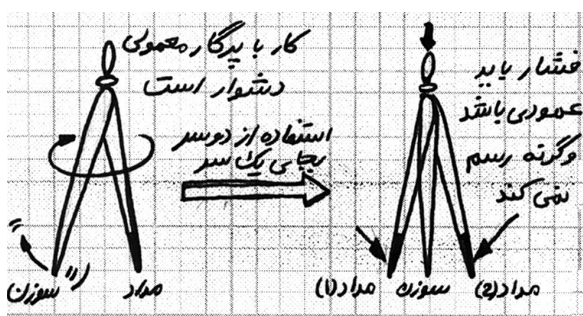 کار با پرگار معمولی
دشوار است
استفاده از دوسر
بجای یک سر
فشار باید
عمودی باشد
وگرنه رسم
نمی کند
سوزن
مداد
مداد(1)
سوزن
مداد(2)